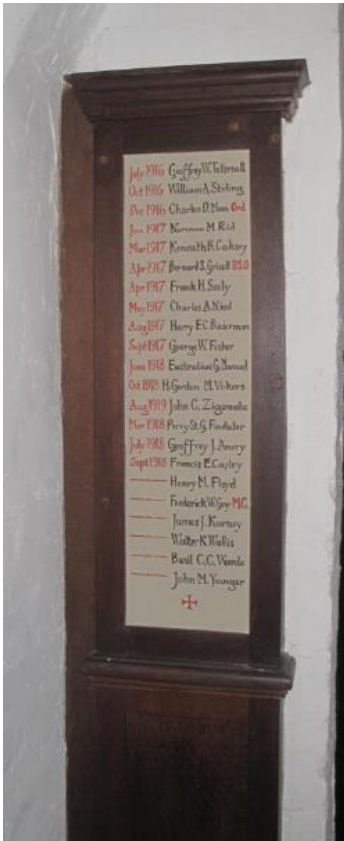 July 1916 Geoffrey W. Tatersall
Oct 1916 William A. Stirling
Dec 1916 Charles D. Moon Ord
Jan 1917 Norman M.
Mar 1917 Kenneth B.
Apr 1917 Bernard S. DSO
Apr 1917 Frank H. Seely
May 1917 Charles A. Nicol
Aug 1917 Harry E.C. Bearman
Sept 1917 George W. Fisher
June 1918 Eustratius G.
Oct 1918 H. Gordon M. Vickers
Aug 1919 John C. Zigomala
Mar 1918 Percy St. G. Findlater
July 1918 Geoffrey J. Amery
Sept 1918 Francis E. Cayley
Henry M. Floyd
Frederick W. M.C.
James J. Kearsey
Walter K. Wallis
Basil C.C.
John M. Younger